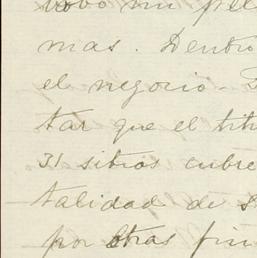 mi pel
mas. Dentro
el negocio.
tar que el tit
31 sitios cubre
talidad de s
por otras fin